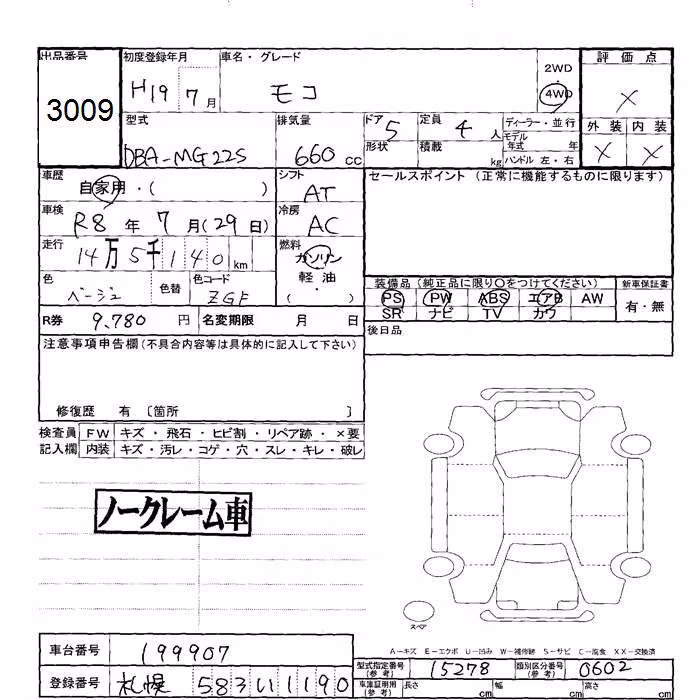 出品番号 初度登録年月 車名・グレード 2WD 評価点
3009 H19 7月 モコ 4WD ×
型式 排気量 ドア 5 定員 4人 ディーラー・並行 外装 内装
DBA-MG22S 660cc 形状 積載 kg モデル年式 年 × ×
ハンドル 左・右
車歴 自家用・( ) シフト AT セールスポイント (正常に機能するものに限ります)
車検 R8年 7月(29日) 冷房 AC
走行 14万5千140km 燃料 ガソリン
軽油
・
( )
色 ベージュ 色替 色コード ZGF
装備品 (純正品に限り○をつけてください) 新車保証書
PS PW ABS エアB AW 有・無
SR ナビ TV カワ
R券 9,780円 名変期限 月 日
後日品
注意事項申告欄 (不具合内容等は具体的に記入して下さい)
修復歴 有 〔箇所 〕
検査員 FW キズ・飛石・ヒビ割・リペア跡・×要
記入欄 内装 キズ・汚レ・コゲ・穴・スレ・キレ・破レ
ノークレーム車
スペア
A-キズ E-エクボ U-凹み W-補修跡 S-サビ C-腐食 XX-交換済
車台番号 199907
型式指定番号(参考) 15278 類別区分番号(参考) 0602
登録番号 札幌 583 い 1190
車庫証明用(参考) 長さ cm 幅 cm 高さ cm